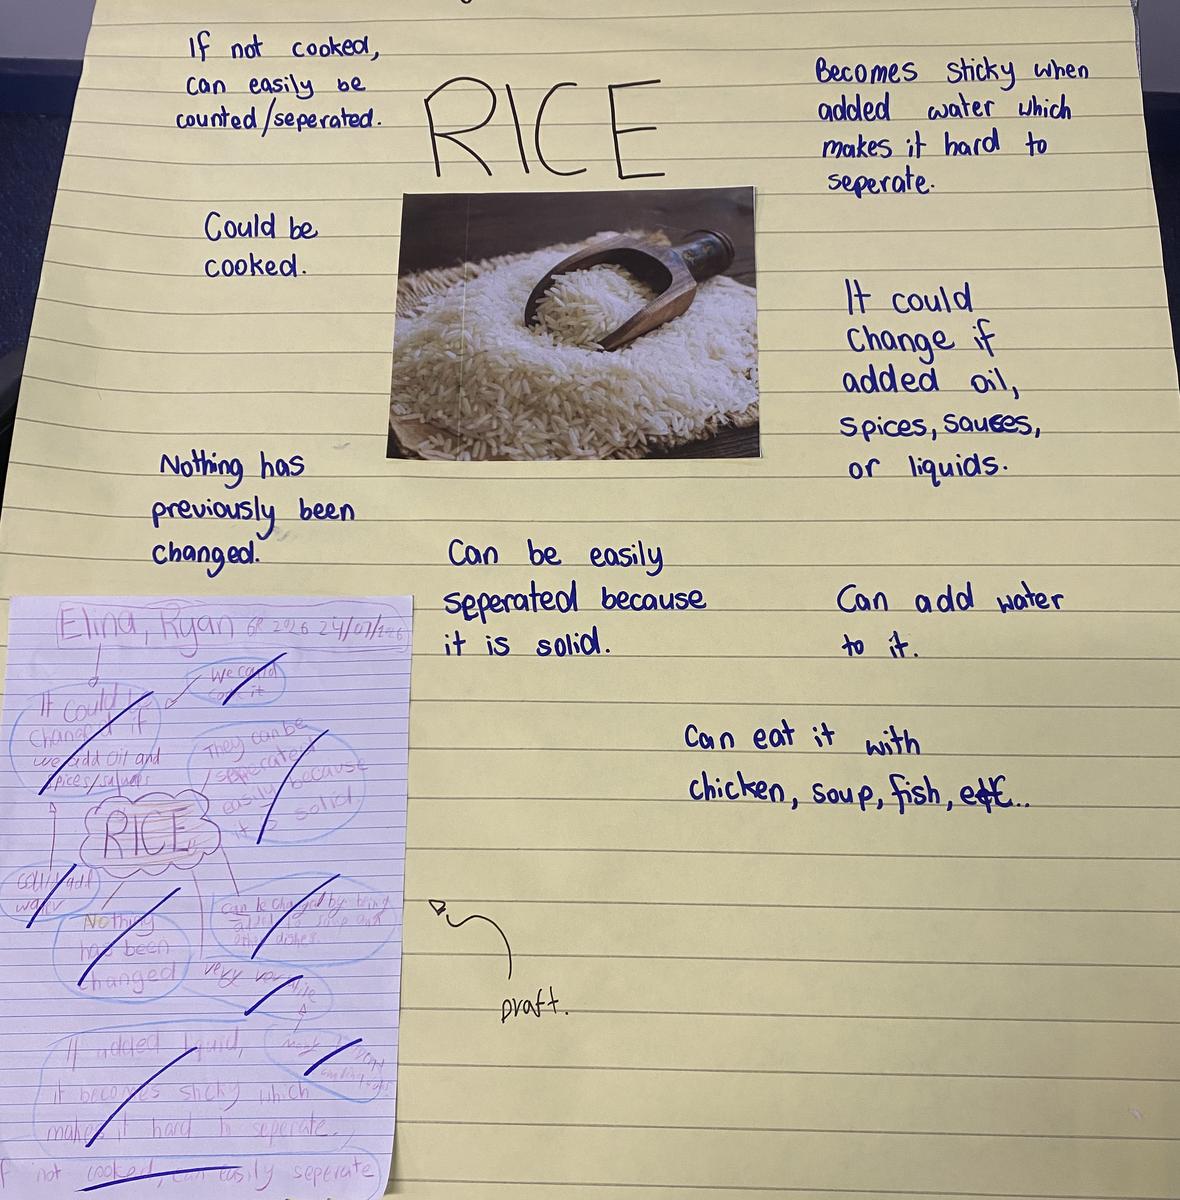 If not cooked,
can easily be
counted/seperated.
RICE
Becomes sticky when
added water which
makes it hard to
seperate.
Could be
cooked.
It could
change if
added oil,
spices, sauces,
or liquids.
Nothing has
previously been
changed.
Can be easily
seperated because
it is solid.
Can add water
to it.
Can eat it with
chicken, soup, fish, etc..
Draft.
Elina, Ryan
It could
changed if
we add oil and
They can be
easily because
it is solid
RICE
Nothing
has been
changed
can be changed by being
very
If added liquid,
it becomes sticky which
makes it hard to seperate.
not cooked, can easily seperate